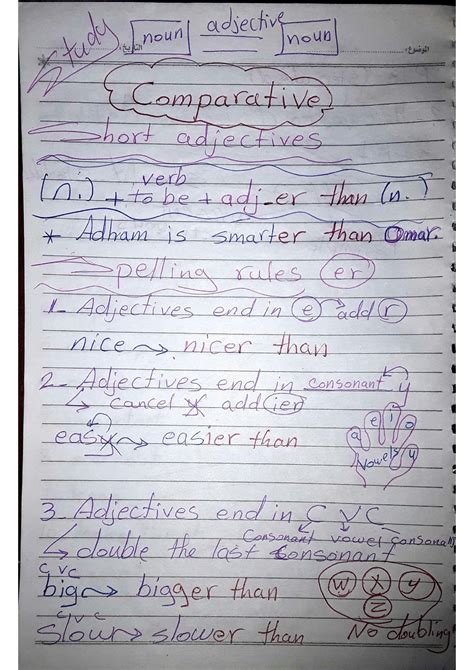 Study noun adjective noun
التاريخ: الموضوع:
Comparative
Short adjectives
verb
(n.) + to be + adj-er than (n.)
* Adham is smarter than Omar.
Spelling rules (er)
1- Adjectives end in e add r
nice → nicer than
2- Adjectives end in consonant y
↳ cancel y add ier
easy → easier than
a e i o u
Vowels
3- Adjectives end in C V C
Consonant vowel consonant
↳ double the last consonant
C V C
big → bigger than
W X y
Z
C V C
slow → slower than No doubling